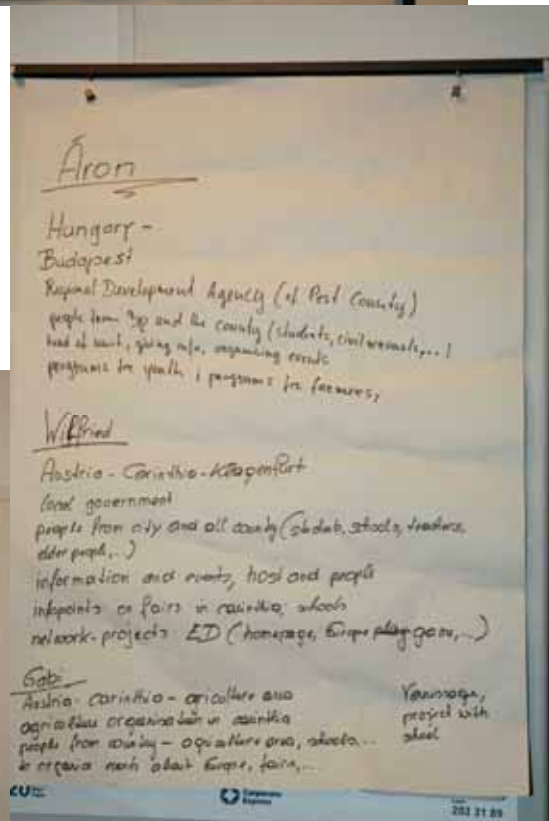 Áron
Hungary -
Budapest
Regional Development Agency (of Pest County)
people from Bp and the county (students, civil servants,...)
head of unit, giving info, organising events
programs for youth, programs for farmers,
Wilfried
Austria - Carinthia - Klagenfurt
local government
people from city and all county (students, schools, teachers,
elder people,...)
information and events, host and people
infopoints on fairs in carinthia, schools
network-projects ED (homepage, Europe game,...)
Gabi
Austria - Carinthia - agriculture area
agriculture organisation in carinthia
people from country - agriculture area, schools...
to organise much about Europe, fairs,...
project with
school
Corporate
Express
203 31 89